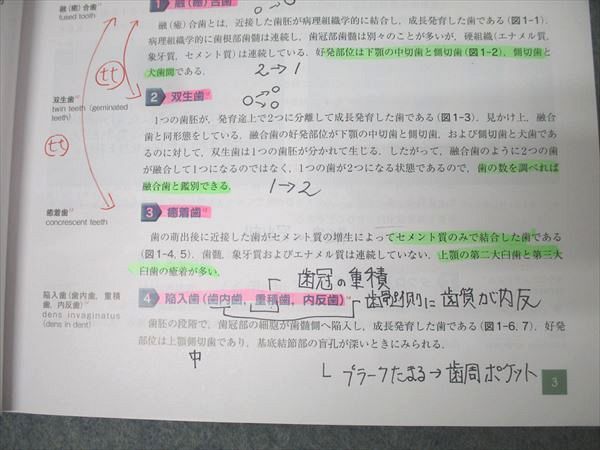 融(癒)合歯
fused tooth
1 融(癒)合歯
融(癒)合歯とは，近接した歯胚が病理組織学的に結合し，成長発育した歯である(図1-1)．
病理組織学的に歯根部歯髄は連続し，歯冠部歯髄は別々のことが多いが，硬組織(エナメル質，
象牙質，セメント質)は連続している．好発部位は下顎の中切歯と側切歯(図1-2)，側切歯と
犬歯間である．
2→1
双生歯
twin teeth (geminated
teeth)
2 双生歯
1つの歯胚が，発育途上で2つに分離して成長発育した歯である(図1-3)．見かけ上，融合
歯と同形態をしている．融合歯の好発部位が下顎の中切歯と側切歯，および側切歯と犬歯であ
るのに対して，双生歯は1つの歯胚が分かれて生じる．したがって，融合歯のように2つの歯
が融合して1つになるのではなく，1つの歯が2つになる状態であるので，歯の数を調べれば
融合歯と鑑別できる．
1→2
癒着歯
concrescent teeth
3 癒着歯
歯の萌出後に近接した歯がセメント質の増生によってセメント質のみで結合した歯である
(図1-4, 5)．歯髄，象牙質およびエナメル質は連続していない．上顎の第二大臼歯と第三大
臼歯の癒着が多い．
歯冠の重積
陥入歯(歯内歯，重積
歯，内反歯)
dens invaginatus
(dens in dent)
4 陥入歯(歯内歯，重積歯，内反歯)
歯髄側に歯質が内反
歯胚の段階で，歯冠部の細胞が歯髄側へ陥入し，成長発育した歯である(図1-6, 7)．好発
部位は上顎側切歯であり，基底結節部の盲孔が深いときにみられる．
中
プラークたまる→歯周ポケット
3